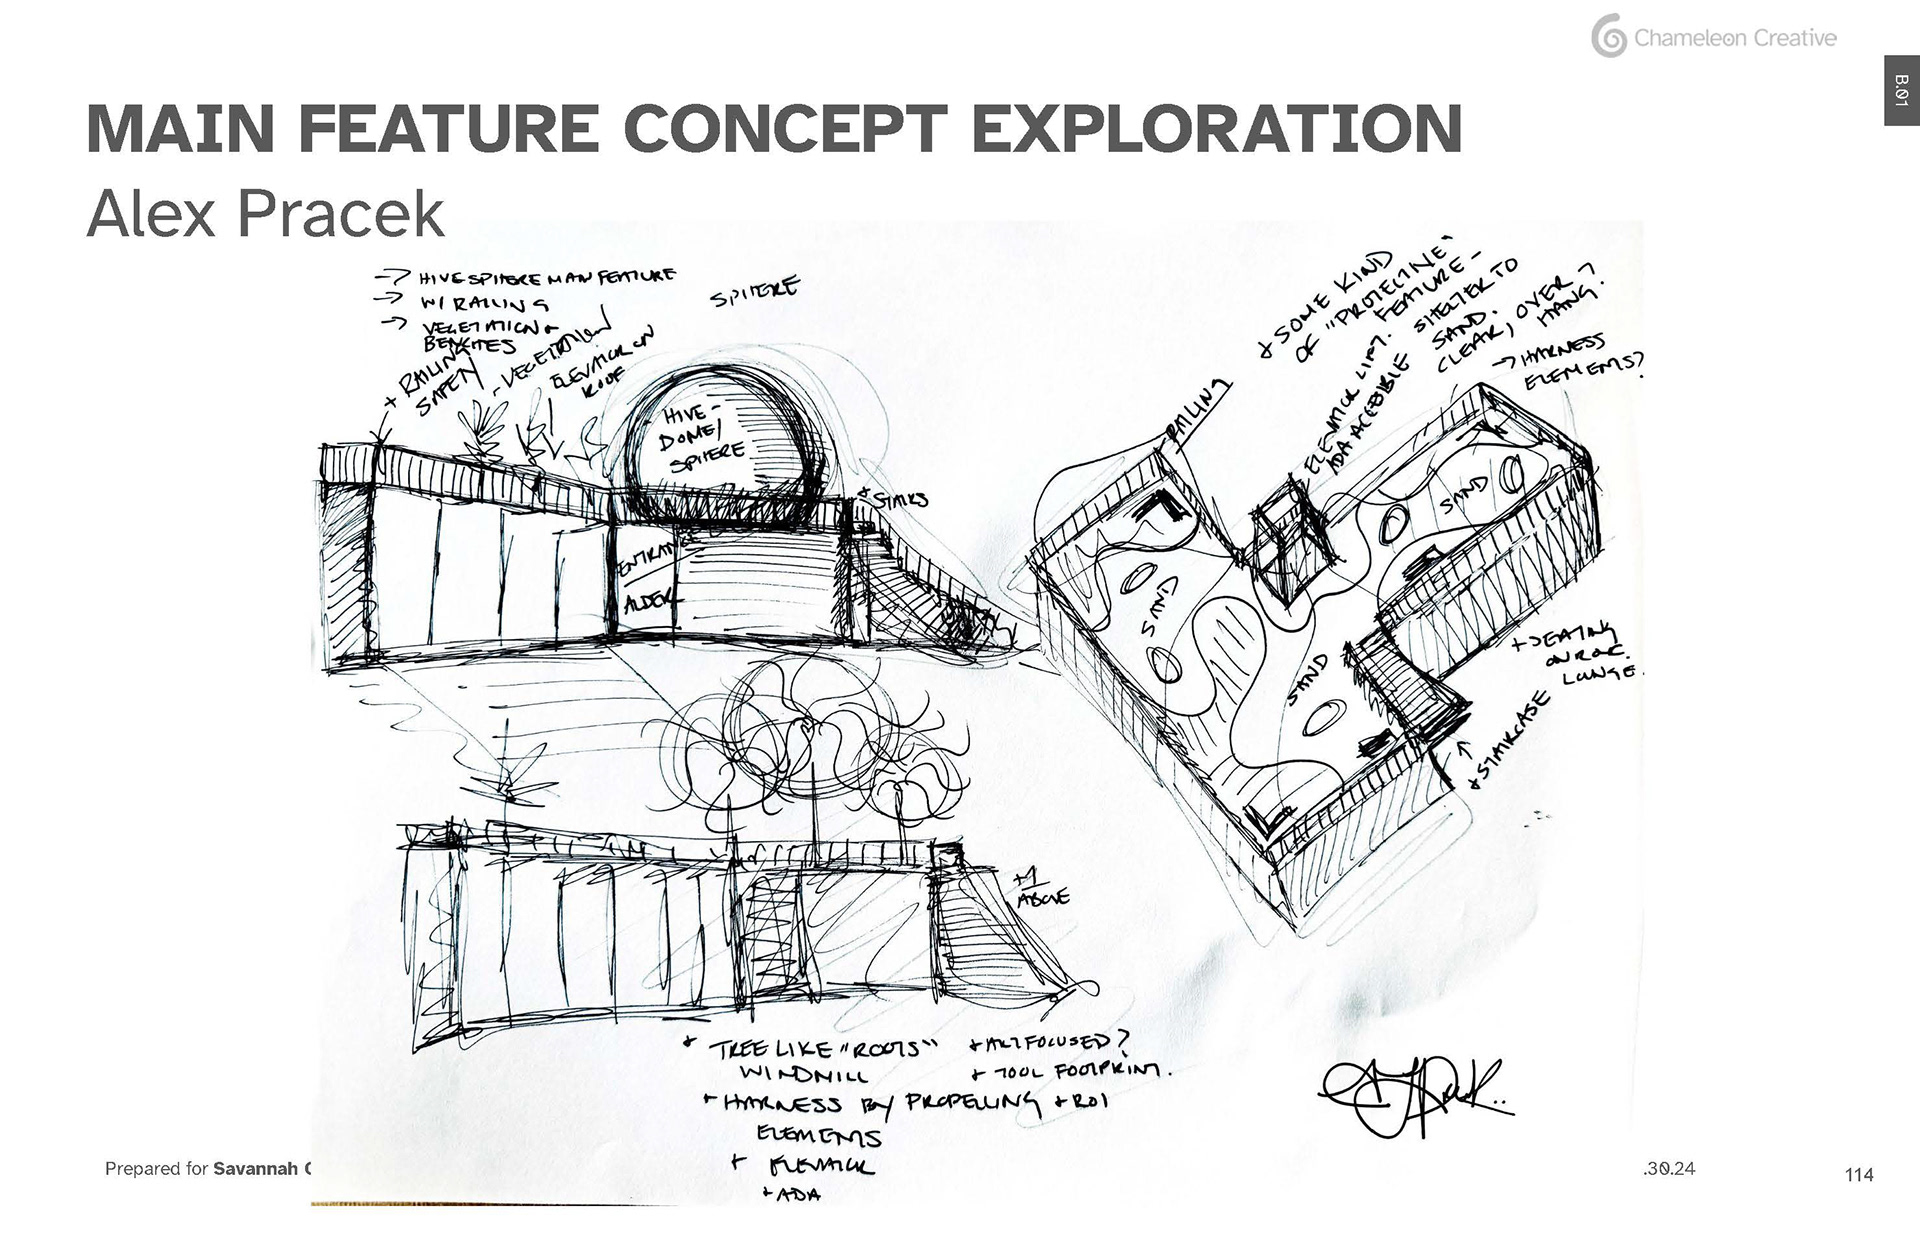 Chameleon Creative
B.01
MAIN FEATURE CONCEPT EXPLORATION
Alex Pracek
→ HIVE SPHERE MAIN FEATURE
→ W/ RAILING
→ VEGETATION &
BENCHES
+ RAILING
SAFETY
- VEGETATION
ELEVATOR ON
ROOF
SPHERE
HIVE -
DOME/
SPHERE
+ STAIRS
ENTRANCE
ALDER
+ SOME KIND
OF "PROTECTIVE"
FEATURE -
SHELTER TO
SAND.
CLEAR, OVER
HANG?
→ HARNESS
ELEMENTS?
RAILING
ELEVATOR LIFT.
ADA ACCESSIBLE
SAND
SAND
SAND
+ SEATING
ON ROOF.
LOUNGE.
+ STAIRCASE
ABOVE
+ TREE LIKE "ROOTS"
WINDMILL
+ HARNESS BY PROPELLING
ELEMENTS
+ ELEVATOR
+ ADA
+ ART FOCUSED?
+ 1001 FOOTPRINT.
+ ROI
Prepared for Savannah
.30.24
114